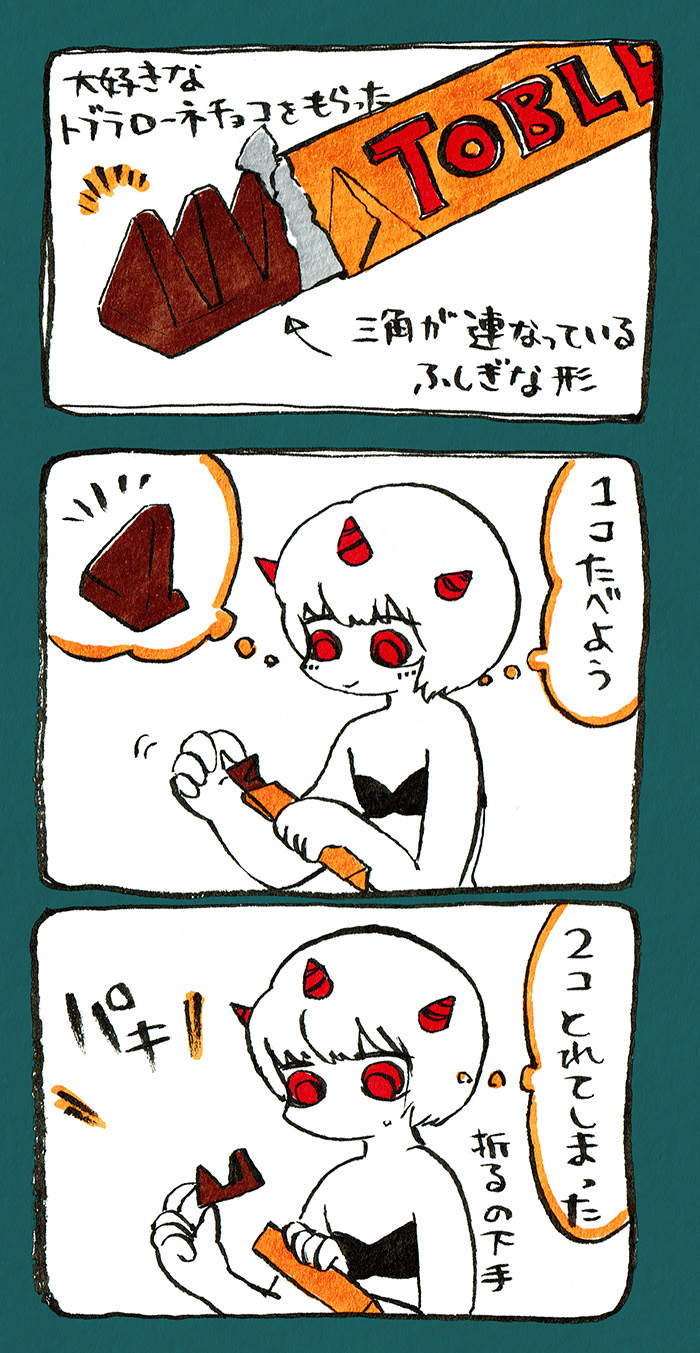 大好きな
トブラローネチョコをもらった
TOBLE
三角が連なっている
ふしぎな形
1コたべよう
2コとれてしまった
パキー
折るの下手